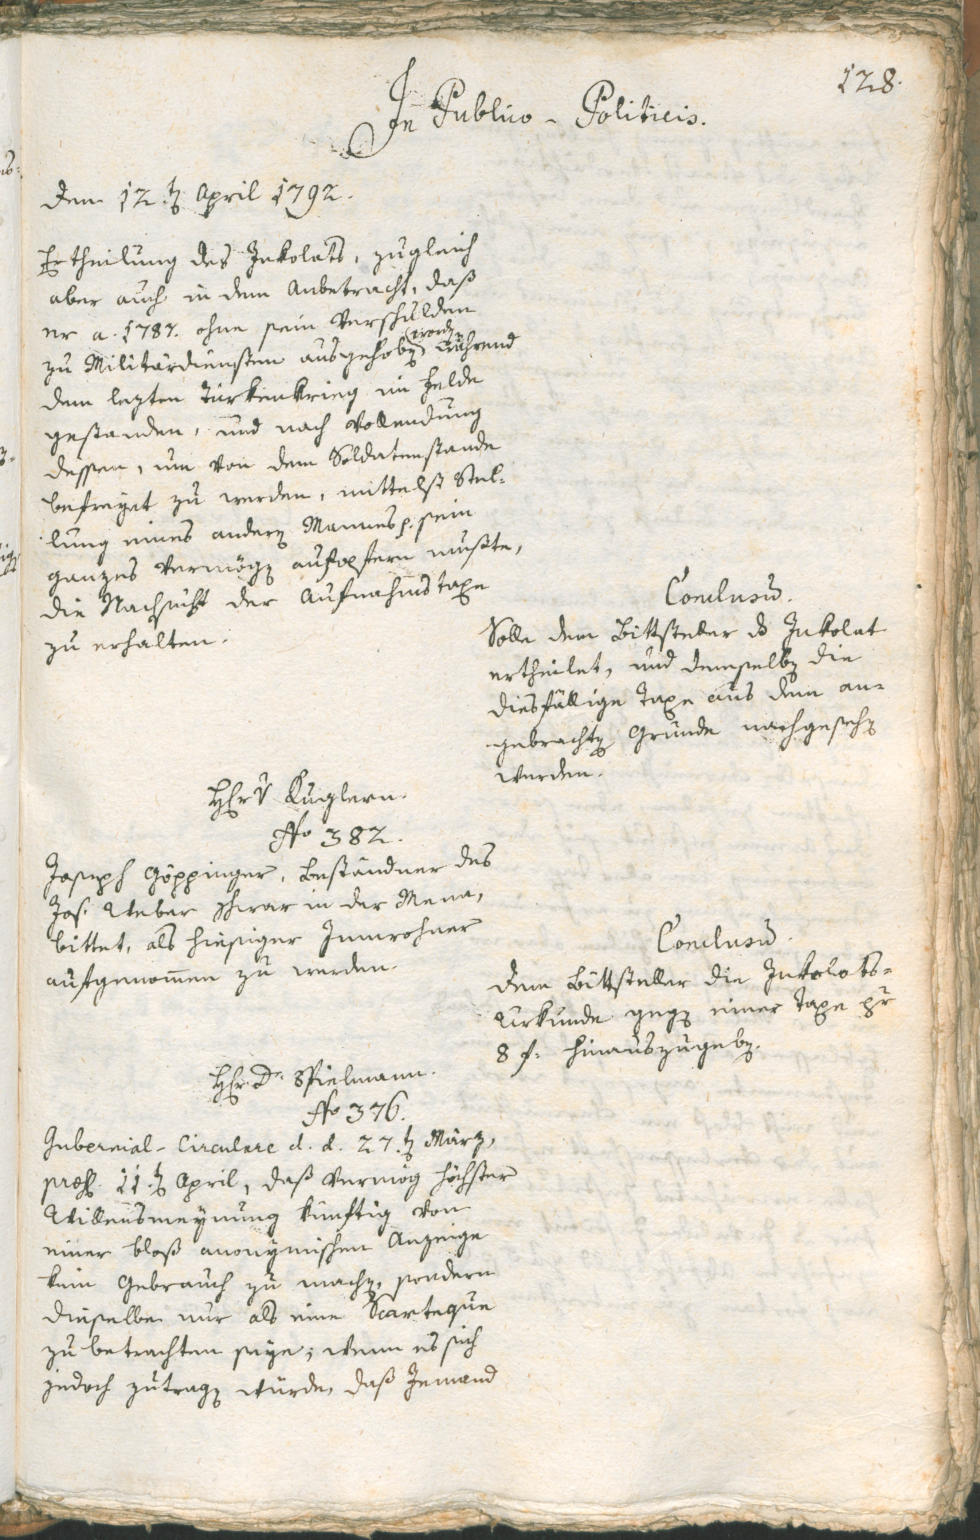 128.
In Publico-Politicis.
den 12.t April 1792.
Ertheilung des Inkolats, zugleich
aber auch in dem Anbetracht, daß
er a. 1787. ohne sein Verschulden
zu Militärdiensten ausgehobẽ word während
dem lezten Türkenkrieg im Felde
gestanden, und nach Vollendung
dessen, um von dem Soldatenstande
befreyet zu werden, mittelst Stel-
lung eines andern Mannes p. sein
ganzes Vermögẽ aufopfern mußte,
die Nachsicht der Aufnahmstaxe
zu erhalten.
Conclusũ.
Solle dem Bittsteller ds Inkolat
ertheilet, und demselbẽ die
diesfällige Taxe aus dem an-
gebrachtẽ Grunde nachgesehẽ
werden.
Hr v Kuglern.
No 382.
Joseph Göppinger, Beständner des
Jos. Weber in der Mena,
bittet, als hiesiger Innwohner
aufgenom̄en zu werden.
Conclusũ.
dem Bittsteller die Inkolats-
Urkunde gegẽ einer Taxe pr
8 f. hinauszugebẽ.
Hr. Dr. Spielmann.
No 376.
Gubernial-Circulare d. d. 27.t März,
præs. 11.t April, daß vermög höchster
Willensmeynung künftig von
einer bloß anonymischen Anzeige
kein Gebrauch zu machẽ, sondern
dieselbe nur als eine Scarteque
zu betrachten seye; wenn es sich
jedoch zutragẽ würde, daß Jemand